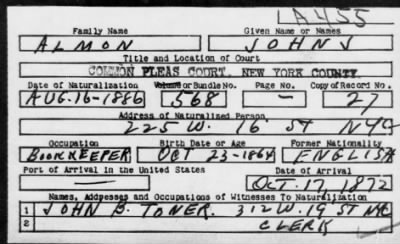 LA 455
Family Name Given Name or Names
ALMON JOHN J
Title and Location of Court
COMMON PLEAS COURT, NEW YORK COUNTY
Date of Naturalization Volume or Bundle No. Page No. Copy of Record No.
AUG. 16-1886 568 — 27
Address of Naturalized Person
225 W. 16 ST NYC
Occupation Birth Date or Age Former Nationality
BOOKKEEPER OCT 23-1864 ENGLISH
Port of Arrival in the United States Date of Arrival
— OCT. 17, 1872
Names, Addresses and Occupations of Witnesses To Naturalization
1 JOHN B. TONER. 312 W. 19 ST NYC
2 CLERK